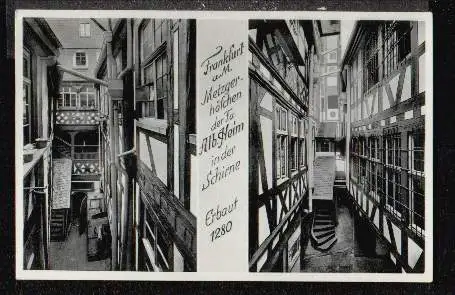 Frankfurt
a/M.
Metzger-
höfchen
der Fa
Alb. Heim
in der
Schirne
Erbaut
1280